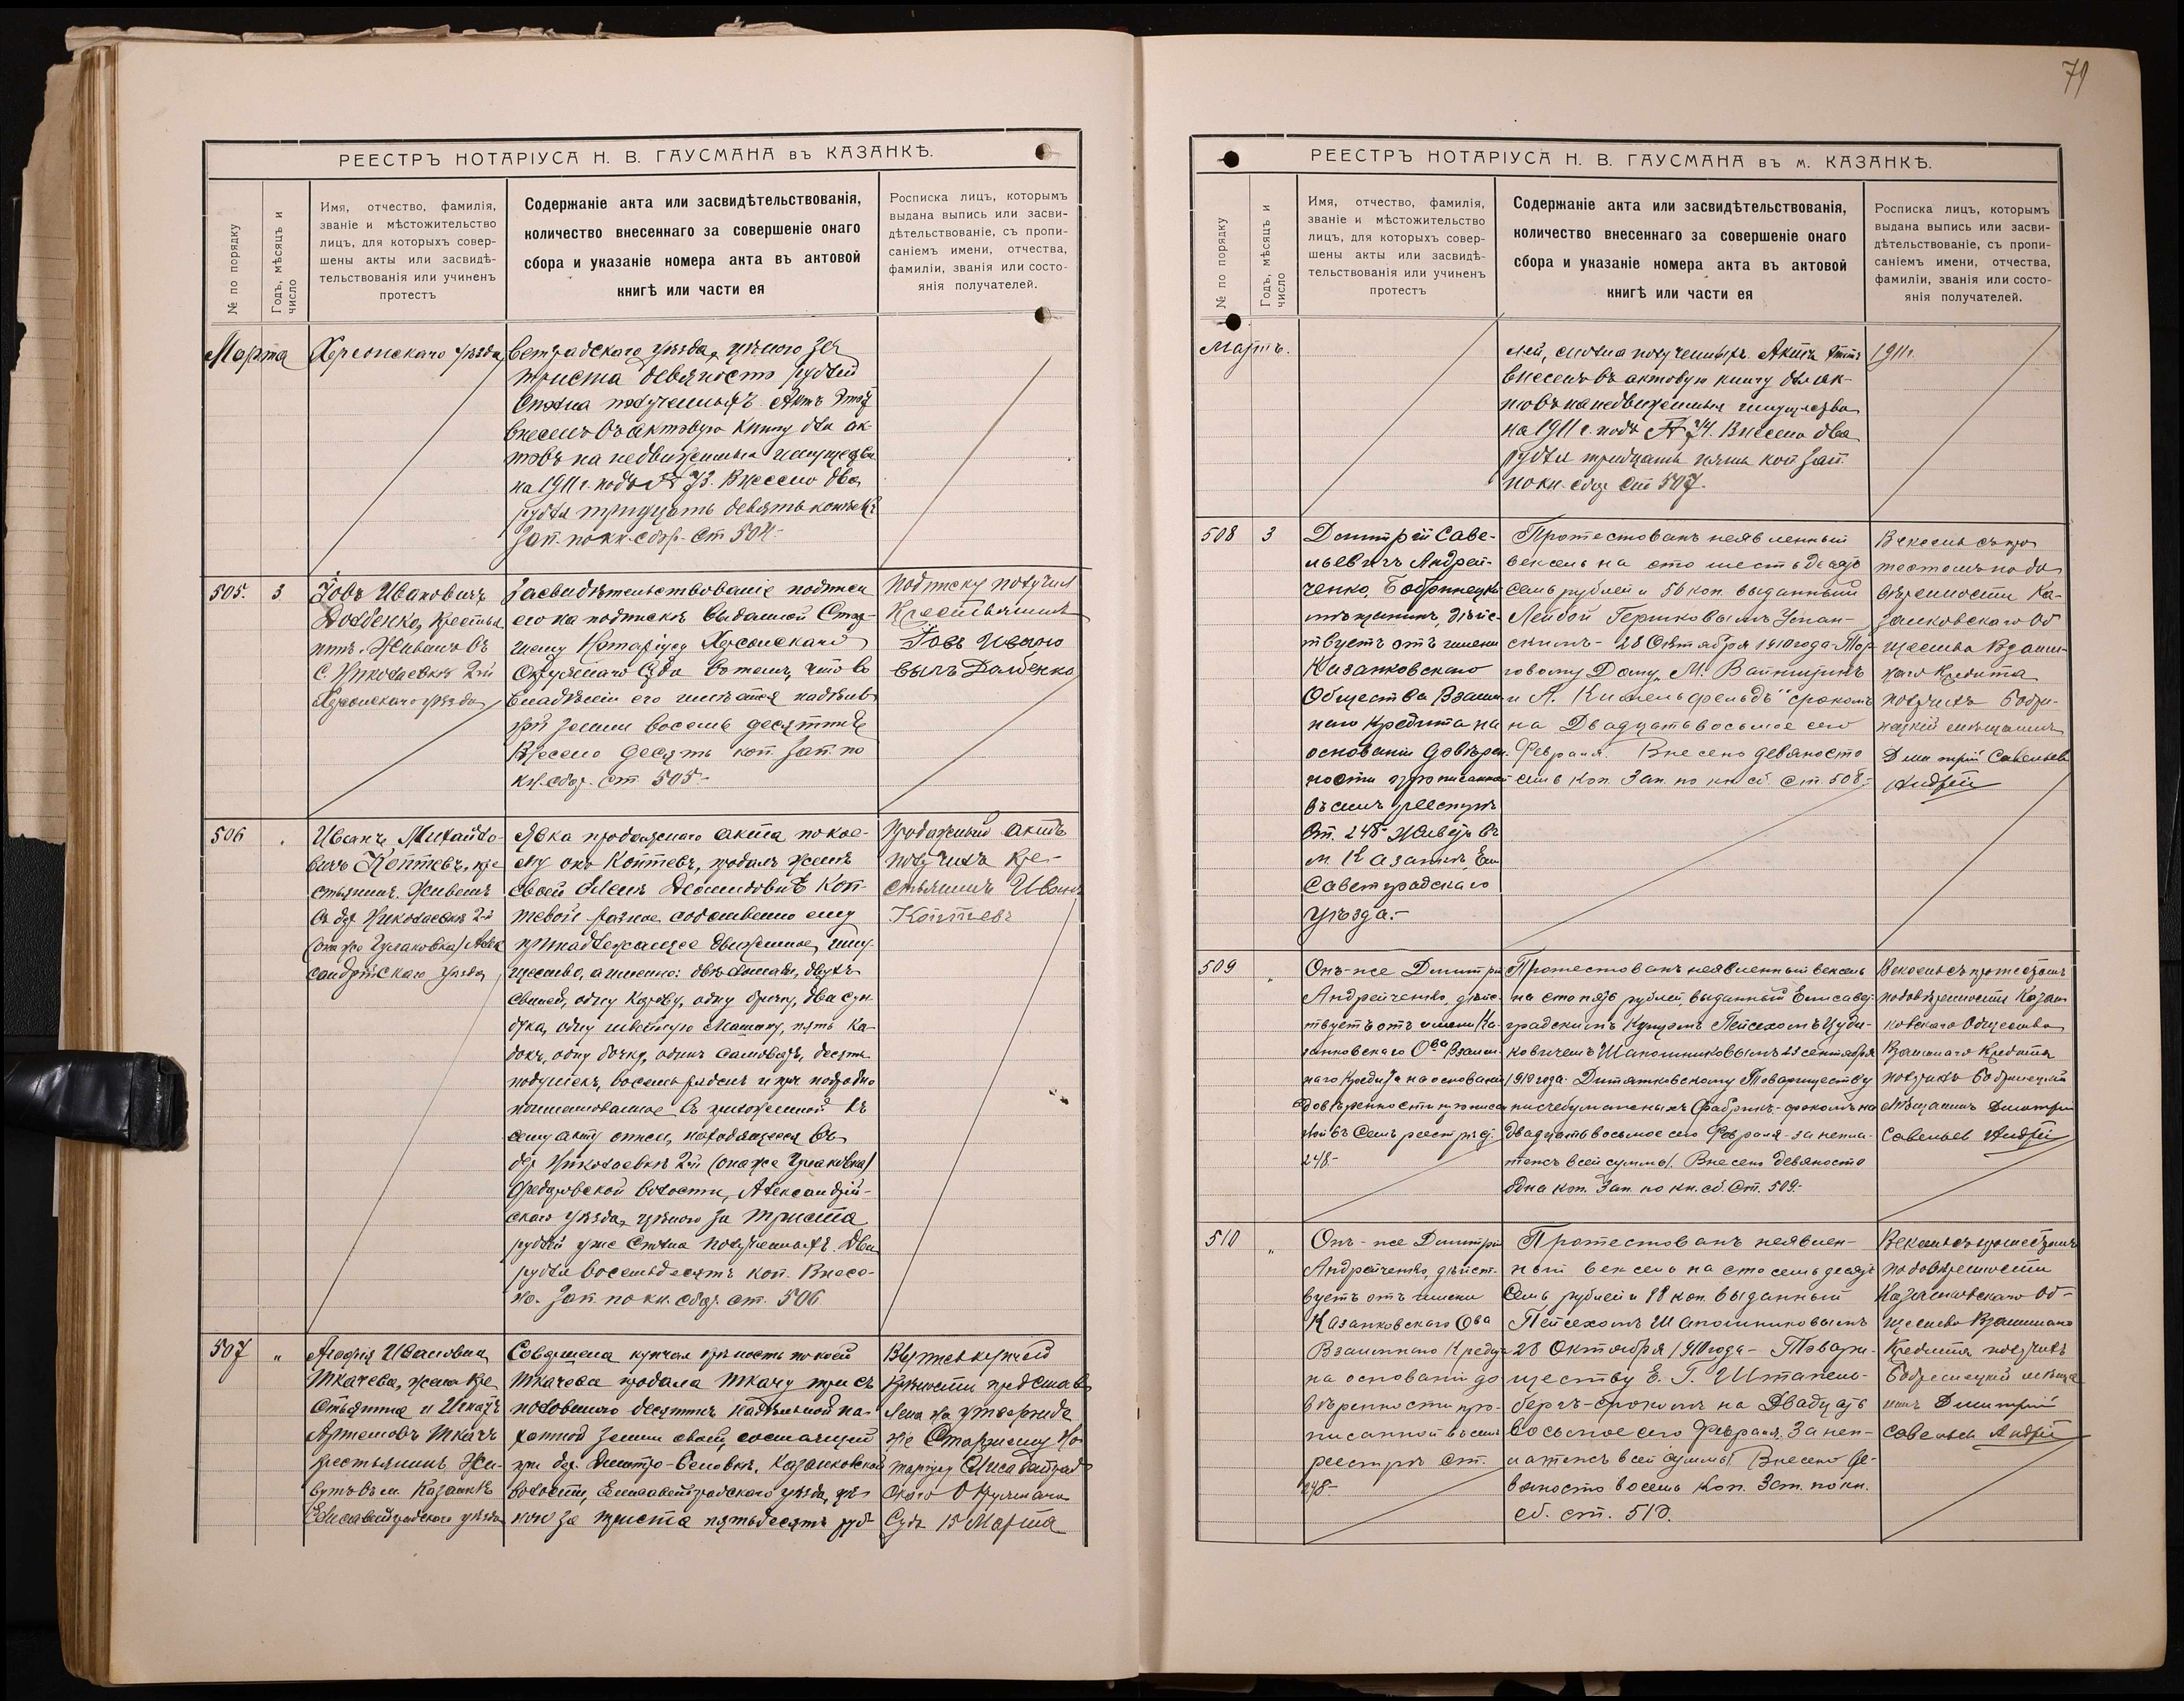 79
РЕЕСТРЪ НОТАРІУСА Н. В. ГАУСМАНА въ КАЗАНКѢ.
№ по порядку
Годъ, мѣсяцъ и
число
Имя, отчество, фамилія,
званіе и мѣстожительство
лицъ, для которыхъ совер-
шены акты или засвидѣ-
тельствованія или учиненъ
протестъ
Содержаніе акта или засвидѣтельствованія,
количество внесеннаго за совершеніе онаго
сбора и указаніе номера акта въ актовой
книгѣ или части ея
Росписка лицъ, которымъ
выдана выпись или засви-
дѣтельствованіе, съ пропи-
саніемъ имени, отчества,
фамиліи, званія или состо-
янія получателей.
Марта
Херсонскаго уѣзда
ветградскаго уѣзда, цѣною за
триста девяносто рублей
сполна полученныхъ. Актъ этотъ
внесенъ въ актовую книгу для ак-
товъ на недвижимыя имущества
на 1911 г. подъ № 73. Внесено два
рубля тридцать девять копѣекъ
Зап. по кн. сбор. ст. 504.
505.
3
Іовъ Ивановичъ
Долденко, крестья
нинъ. Живетъ въ
с. Николаевкѣ 2-й
Херсонскаго уѣзда
Засвидѣтельствованіе подписи
его на подпискѣ выданной Стар-
шему Нотаріусу Херсонскаго
Окружнаго Суда въ томъ, что во
владѣніи его имѣется надѣльн-
ой земли восемь десятинъ
Внесено десять коп. Зап. по
кн. сбор. ст. 505-
Подписку получилъ
Крестьянинъ
Іовъ Ивано
вичъ Долденко
506
Иванъ Михайло-
вичъ Коптевъ, кре
стьянинъ. Живетъ
въ дер. Николаевкѣ 2-й
(она же Гулаковка) Алек
сандрійскаго уѣзда
Явка продажнаго акта по кое-
му онъ Коптевъ, продалъ женѣ
своей Еленѣ Леонидовнѣ Коп-
тевой разное собственно ему
принадлежащее движимое иму-
щество, а именно: двѣ лошади, двухъ
свиней, одну корову, одну бричку, два сун
дука, одну швейную машину, пять ка-
докъ, одну бочку, одинъ самоваръ, десять
подушекъ, восемь ряденъ и пр. подробно
поименованное въ приложенной къ
сему акту описи, находящееся въ
дер. Николаевкѣ 2-й (она же Гулаковка)
Федоровской волости, Александрій-
скаго уѣзда, цѣною за триста
рублей уже сполна полученныхъ. Два
рубля восемьдесятъ коп. Внесе-
но. Зап. по кн. сбор. ст. 506
Продажный актъ
получилъ кре-
стьянинъ Иванъ
Коптевъ
507
"
Агафія Ивановна
Ткачева, жена кре
стьянина и Игнатъ
Артемовъ Ткачъ
крестьянинъ. Жи-
вутъ въ м. Казанкѣ
Елисаветградскаго уѣзда
Совершена купчая крѣпость по коей
Ткачева продала Ткачу три съ
половиною десятины надѣльной па-
хотной земли своей, состоящей
при дер. Дмитро-Бѣловкѣ, Казанковской
волости, Елисаветградскаго уѣзда, цѣ-
ною за триста пятьдесятъ руб-
Выпись купчей
крѣпости представ
лена на утвержде
ніе Старшему Но
таріусу Елисаветград
скаго Окружнаго
Суда 15 Марта
РЕЕСТРЪ НОТАРІУСА Н. В. ГАУСМАНА въ м. КАЗАНКѢ.
№ по порядку
Годъ, мѣсяцъ и
число
Имя, отчество, фамилія,
званіе и мѣстожительство
лицъ, для которыхъ совер-
шены акты или засвидѣ-
тельствованія или учиненъ
протестъ
Содержаніе акта или засвидѣтельствованія,
количество внесеннаго за совершеніе онаго
сбора и указаніе номера акта въ актовой
книгѣ или части ея
Росписка лицъ, которымъ
выдана выпись или засви-
дѣтельствованіе, съ пропи-
саніемъ имени, отчества,
фамиліи, званія или состо-
янія получателей.
Мартъ.
лей, сполна полученныхъ. Актъ этотъ
внесенъ въ актовую книгу для ак-
товъ на недвижимыя имущества
на 1911 г. подъ № 74. Внесено два
рубля тридцать пять коп. Зап.
по кн. сбор. ст. 507.
1911 г.
508
3
Дмитрій Саве-
льевичъ Андрей-
ченко, Бобринецкій
мѣщанинъ, дѣйс-
твуетъ отъ имени
Казанковскаго
Общества Взаим
наго Кредита на
основаніи довѣрен-
ности прописанной
въ семъ реестрѣ
Ст. 248- Живетъ въ
м. Казанкѣ Ели
саветградскаго
уѣзда.-
Протестованъ неявленный
вексель на сто шестьдесятъ
семь рублей и 50 коп. выданный
Лейбой Гершковымъ Успан-
скимъ- 28 Октября 1910 года Тор-
говому Дому „М. Вайнцигъ
и А. Кишельфельдъ" срокомъ
на Двадцать восьмое сего
Февраля. Внесено девяносто
семь коп. Зап. по кн. сб. Ст. 508.-
Вексель съ про
тестомъ по до
вѣренности Ка-
занковскаго Об
щества Взаим-
наго Кредита
получилъ Бобри-
нецкій мѣщанинъ
Дмитрій Савельев
Андрей
509
"
Онъ-же Дмитрій
Андрейченко, дѣйс-
твуетъ отъ имени Ка-
занковскаго Ова Взаим-
наго Кредита на основаніи
довѣренности прописан
ной въ семъ реестрѣ ст.
248-
Протестованъ неявленный вексель
на сто пять рублей, выданный Елисавет-
градскимъ Купцомъ Пейсехомъ Иуди-
ковичемъ Шапошниковымъ 23 сентября
1910 года. Дитятковскому Товариществу
писчебумажныхъ Фабрикъ-срокомъ на
двадцать восьмое сего Февраля-за непла-
тежъ всей суммы. Внесено девяносто
одна коп. Зап. по кн. сб. Ст. 509.-
Вексель съ протестомъ
по довѣренности Казан
ковскаго Общества
Взаимнаго Кредита
получилъ Бобринецкій
мѣщанинъ Дмитрій
Савельев Андрей
510
"
Онъ-же Дмитрій
Андрейченко, дѣйст-
вуетъ отъ имени
Казанковскаго Ова
Взаимнаго Кредита
на основаніи до
вѣренности про-
писанной въ семъ
реестрѣ ст.
248-
Протестованъ неявлен-
ный вексель на сто семьдесятъ
семь рублей и 88 коп. выданный
Пейсехомъ Шапошниковымъ
28 Октября 1910 года- Товари-
ществу Е. Г. Штапель-
бергъ-срокомъ на Двадцать
восьмое сего Февраля. За неп-
латежъ всей суммы. Внесено де-
вяносто восемь коп. Зап. по кн.
сб. ст. 510.
Вексель съ протестомъ
по довѣренности
Казанковскаго Об-
щества Взаимнаго
Кредита получилъ
Бобринецкій мѣща
нинъ Дмитрій
Савельев Андрей